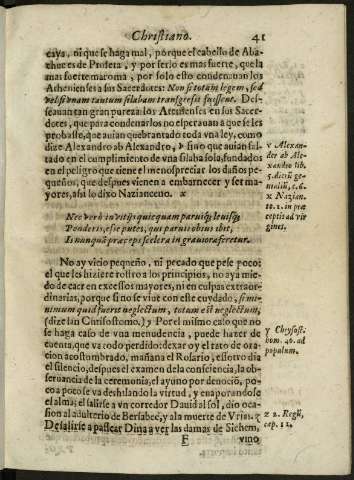 Christiano. 41
caya, ni que se haga mal, porque el cabello de Aba-
chues de Profeta, y por serlo es mas fuerte, que la
mas fuerte maroma, por solo esto condenauan los
Athenienses a sus Sacerdotes: Non si totam legem, sed
vel si vnam tantum silabam transgressi fuissent. Des-
seauan tan gran pureza los Atenienses en sus Sacer-
dotes, que para condenarlos no esperauan a que se les
probasse, que auian quebrantado toda vna ley, como
dize Alexandro ab Alexandro, v sino que auian fal-
tado en el cumplimiento de vna silaba sola, fundados
en el peligro que tiene el menospreciar los daños pe-
queños, que despues vienen a embarnecer y ser ma-
yores, assi lo dixo Nazianceno. x
v Alexan-
der ab Ale-
xandro lib.
5. dierũ ge-
nialiũ, c. 6.
x Nazian.
to. 2. in præ
ceptis ad vir
gines.
Nec verò in vitijs quicquam paruiq; leuisq;
Ponderis, esse putes, qui paruis obuius ibit,
Is nunquã præceps scelera in grauiora feretur.
No ay vicio pequeño, ni pecado que pese poco:
el que les hiziere rostro a los principios, no aya mie-
do de caer en excessos mayores, ni en culpas extraor-
dinarias, porque si no se viue con este cuydado, si mi-
nimum quid fuerit neglectum, totum est neglectum,
(dize san Chrisostomo.) y Por el mismo caso que no
se haga caso de vna menudencia, puede hazer de
cuenta, que va todo perdido: dexar oy el rato de oraci-
on acostumbrado, mañana el Rosario, essotro dia
el silencio, despues el examen de la consciencia, la ob-
seruancia de la ceremonia, el ayuno por deuociõ, po-
co a poco se va deshilando la virtud, y enaporandose
el alma; el salirse a vn corredor Dauid al sol, dio oca-
sion al adulterio de Bersabee, y a la muerte de Vrias. z
Desalirse a passear Dina a ver las damas de Sichem,
y Chrysost.
hom. 46. ad
populum.
z 2. Regũ,
cap. 12.
F vino